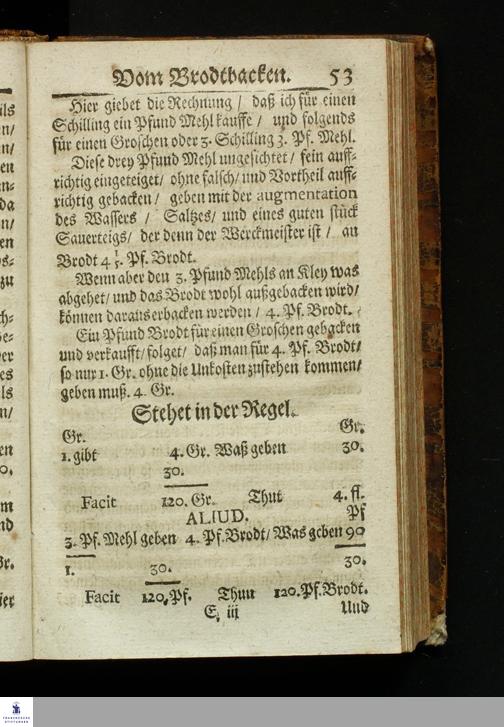 Vom Brodtbacken. 53
Hier giebet die Rechnung / daß ich für einen
Schilling ein Pfund Mehl kauffe / und folgends
für einen Groschen oder 3. Schilling 3. Pf. Mehl.
Diese drey Pfund Mehl ungesichtet / fein auff-
richtig eingeteiget / ohne falsch / und Vortheil auff-
richtig gebacken / geben mit der augmentation
des Wassers / Saltzes / und eines guten stück
Sauerteigs / der denn der Werckmeister ist / an
Brodt 4 1/5. Pf. Brodt.
Wenn aber den 3. Pfund Mehls an Kley was
abgehet / und das Brodt wohl außgebacken wird /
können daraus erbacken werden / 4. Pf. Brodt.
Ein Pfund Brodt für einen Groschen gebacken
und verkaufft / folget / daß man für 4. Pf. Brodt /
so nur 1. Gr. ohne die Unkosten zustehen kommen /
geben muß. 4. Gr.
Stehet in der Regel.
Gr. Gr.
1. gibt 4. Gr. Waß geben 30.
30.
Facit 120. Gr. Thut 4. fl.
ALIUD. Pf
3. Pf. Mehl geben 4. Pf. Brodt / Was geben 90
1. 30. 30.
Facit 120. Pf. Thun 120. Pf. Brodt.
E iij Und
ils
en
da
en
zu
ch-
be-
es
ls
en
m
nd
Gr.
ier
FRANCKESCHE
STIFTUNGEN